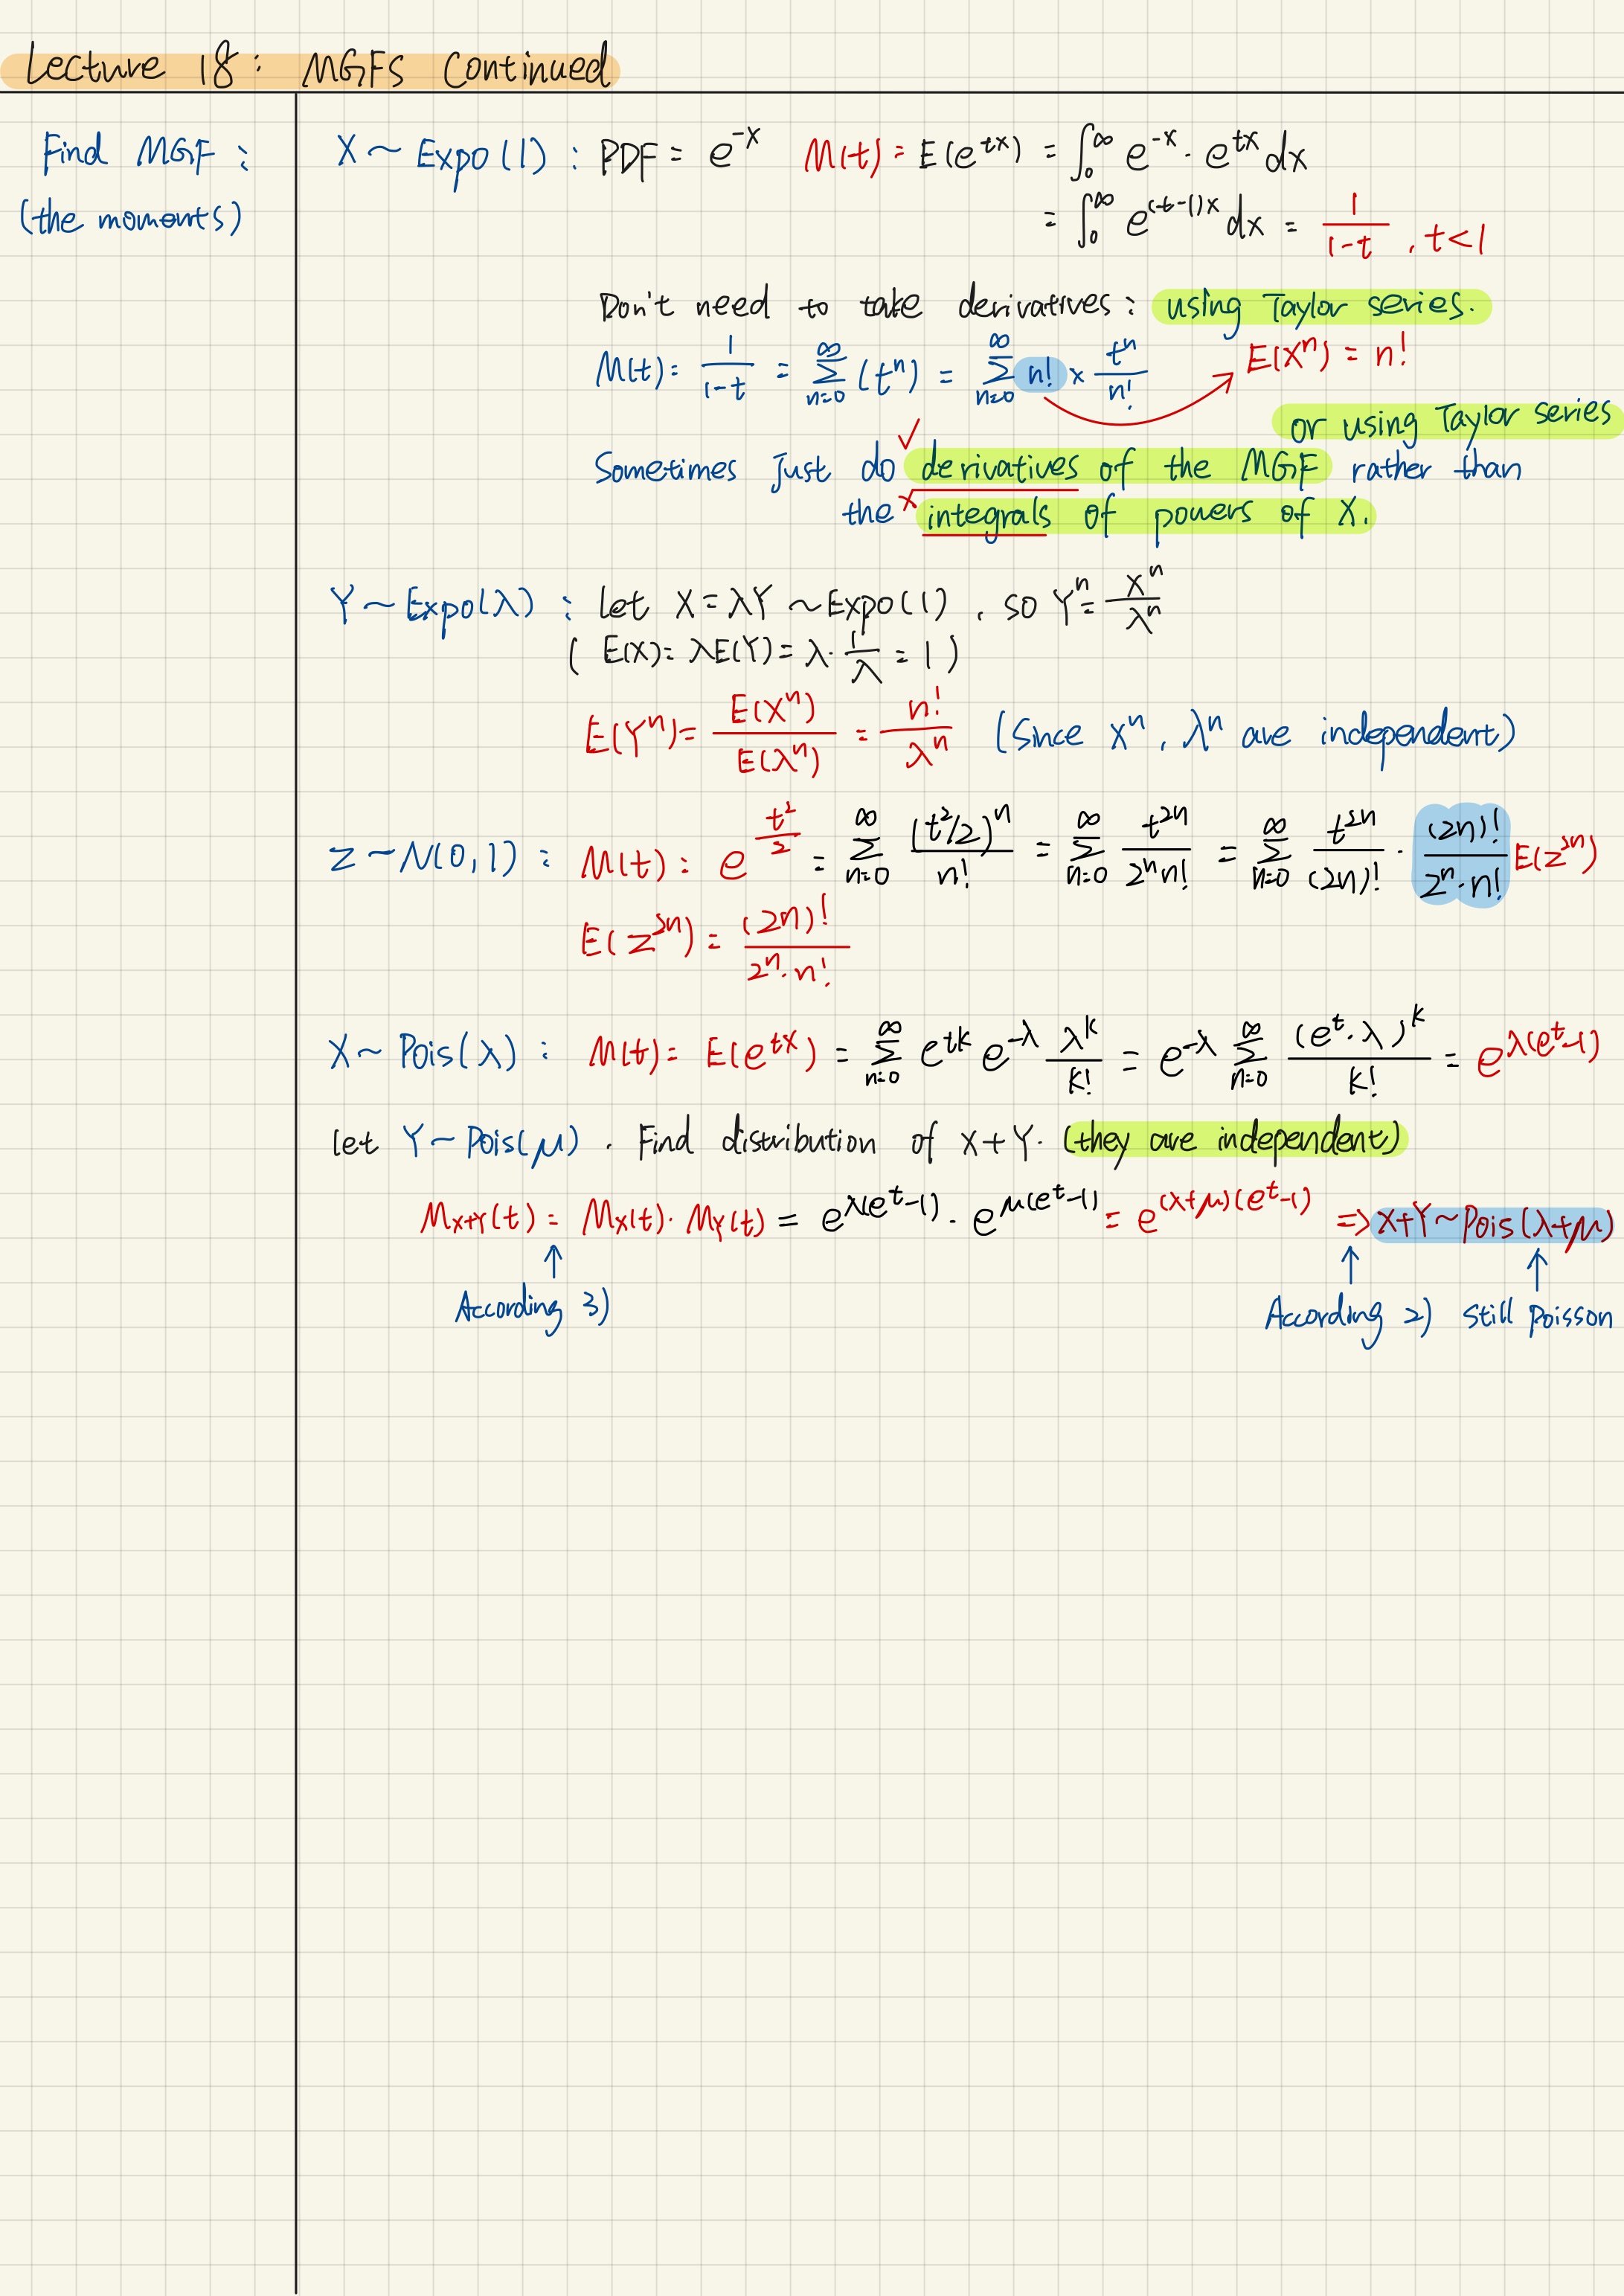 Lecture 18: MGFs Continued
Find MGF:
(the moments)
X ~ Expo(1): PDF = e^{-x}  M(t) = E(e^{tx}) = ∫_0^∞ e^{-x} · e^{tx} dx
= ∫_0^∞ e^{(t-1)x} dx = \frac{1}{1-t}, t<1
Don't need to take derivatives: using Taylor series.
M(t) = \frac{1}{1-t} = \sum_{n=0}^∞ (t^n) = \sum_{n=0}^∞ n! × \frac{t^n}{n!}  E(X^n) = n!
or using Taylor series
Sometimes just do ✓ derivatives of the MGF rather than
the × integrals of powers of X.
Y ~ Expo(λ): let X = λY ~ Expo(1), so Y^n = \frac{X^n}{λ^n}
( E(X) = λE(Y) = λ · \frac{1}{λ} = 1 )
E(Y^n) = \frac{E(X^n)}{E(λ^n)} = \frac{n!}{λ^n} (Since X^n, λ^n are independent)
Z ~ N(0,1): M(t): e^{\frac{t^2}{2}} = \sum_{n=0}^∞ \frac{(t^2/2)^n}{n!} = \sum_{n=0}^∞ \frac{t^{2n}}{2^n n!} = \sum_{n=0}^∞ \frac{t^{2n}}{(2n)!} · \frac{(2n)!}{2^n · n!} E(Z^{2n})
E(Z^{2n}) = \frac{(2n)!}{2^n · n!}
X ~ Pois(λ): M(t) = E(e^{tX}) = \sum_{n=0}^∞ e^{tk} e^{-λ} \frac{λ^k}{k!} = e^{-λ} \sum_{n=0}^∞ \frac{(e^t · λ)^k}{k!} = e^{λ(e^t-1)}
let Y ~ Pois(μ). Find distribution of X+Y. (they are independent)
M_{X+Y}(t) = M_X(t) · M_Y(t) = e^{λ(e^t-1)} · e^{μ(e^t-1)} = e^{(λ+μ)(e^t-1)} => X+Y ~ Pois(λ+μ)
↑ ↑ ↑
According 3) According 2) still Poisson